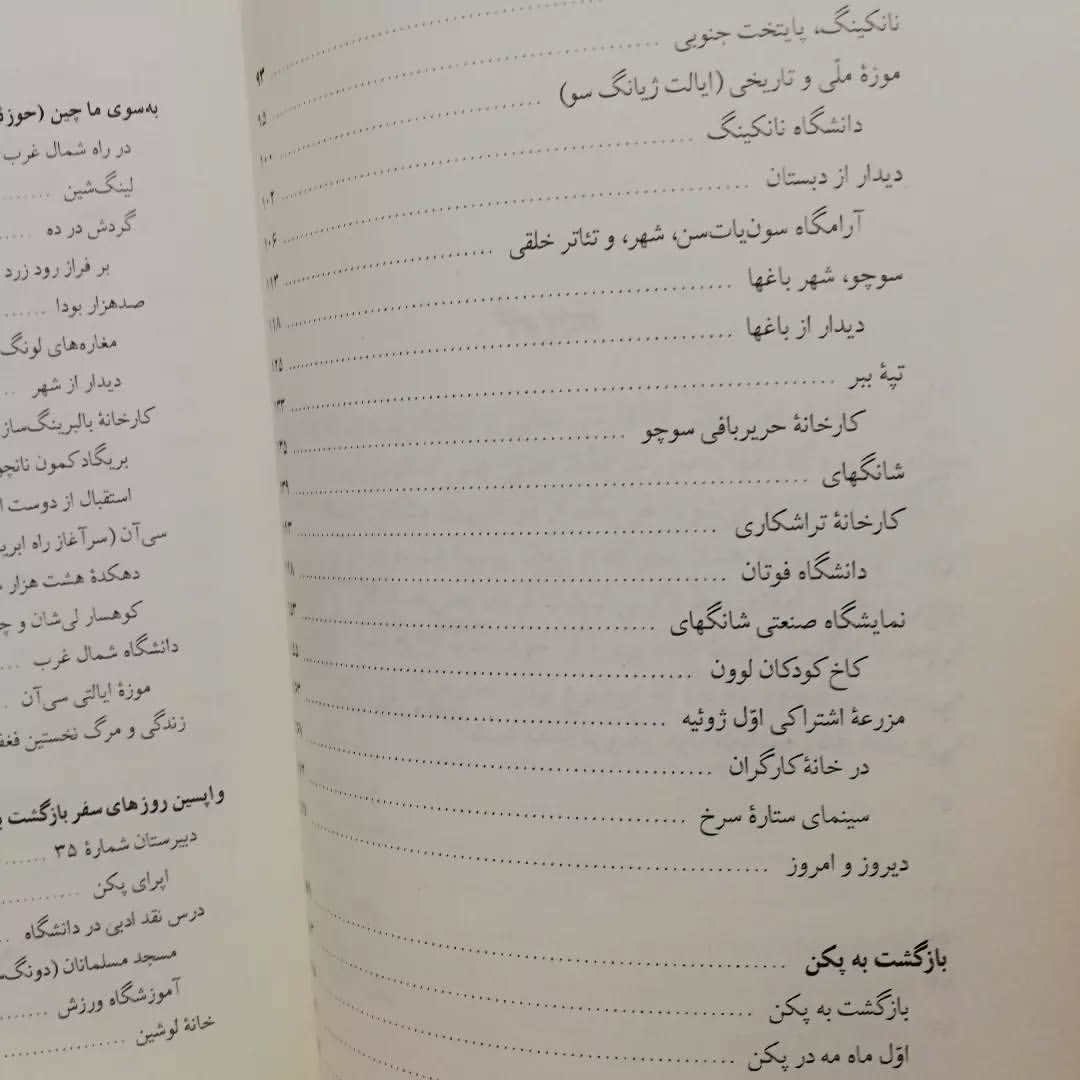 نانکینگ، پایتخت جنوبی ........ ۹۳
موزهٔ ملّی و تاریخی (ایالت ژیانگ سو) ........ ۹۵
دانشگاه نانکینگ ........ ۱۰۰
دیدار از دبستان ........ ۱۰۲
آرامگاه سون‌یات‌سن، شهر، و تئاتر خلقی ........ ۱۰۶
سوچو، شهر باغها ........ ۱۱۳
دیدار از باغها ........ ۱۱۸
تپهٔ ببر ........ ۱۲۵
کارخانهٔ حریربافی سوچو ........
شانگهای ........
کارخانهٔ تراشکاری ........
دانشگاه فوتان ........
نمایشگاه صنعتی شانگهای ........
کاخ کودکان لوون ........
مزرعهٔ اشتراکی اوّل ژوئیه ........
در خانهٔ کارگران ........
سینمای ستارهٔ سرخ ........
دیروز و امروز ........
بازگشت به پکن ........
بازگشت به پکن ........
اوّل ماه مه در پکن ........
به‌سوی ما چین (حوزهٔ
در راه شمال غرب
لینگ‌شین ........
گردش در ده ........
بر فراز رود زرد
صدهزار بودا ........
مغاره‌های لونگ
دیدار از شهر ........
کارخانهٔ بالبرینگ‌ساز
بریگاد کمون نانچو
استقبال از دوست
سی‌آن (سرآغاز راه
دهکدهٔ هشت هزار
کوهسار لی‌شان و
دانشگاه شمال غرب ........
موزهٔ ایالتی سی‌آن ........
زندگی و مرگ نخستین
واپسین روزهای سفر بازگشت
دبیرستان شمارهٔ ۳۵ ........
اپرای پکن ........
درس نقد ادبی در دانشگاه ........
مسجد مسلمانان
آموزشگاه ورزش ........
خانهٔ لوشین ........